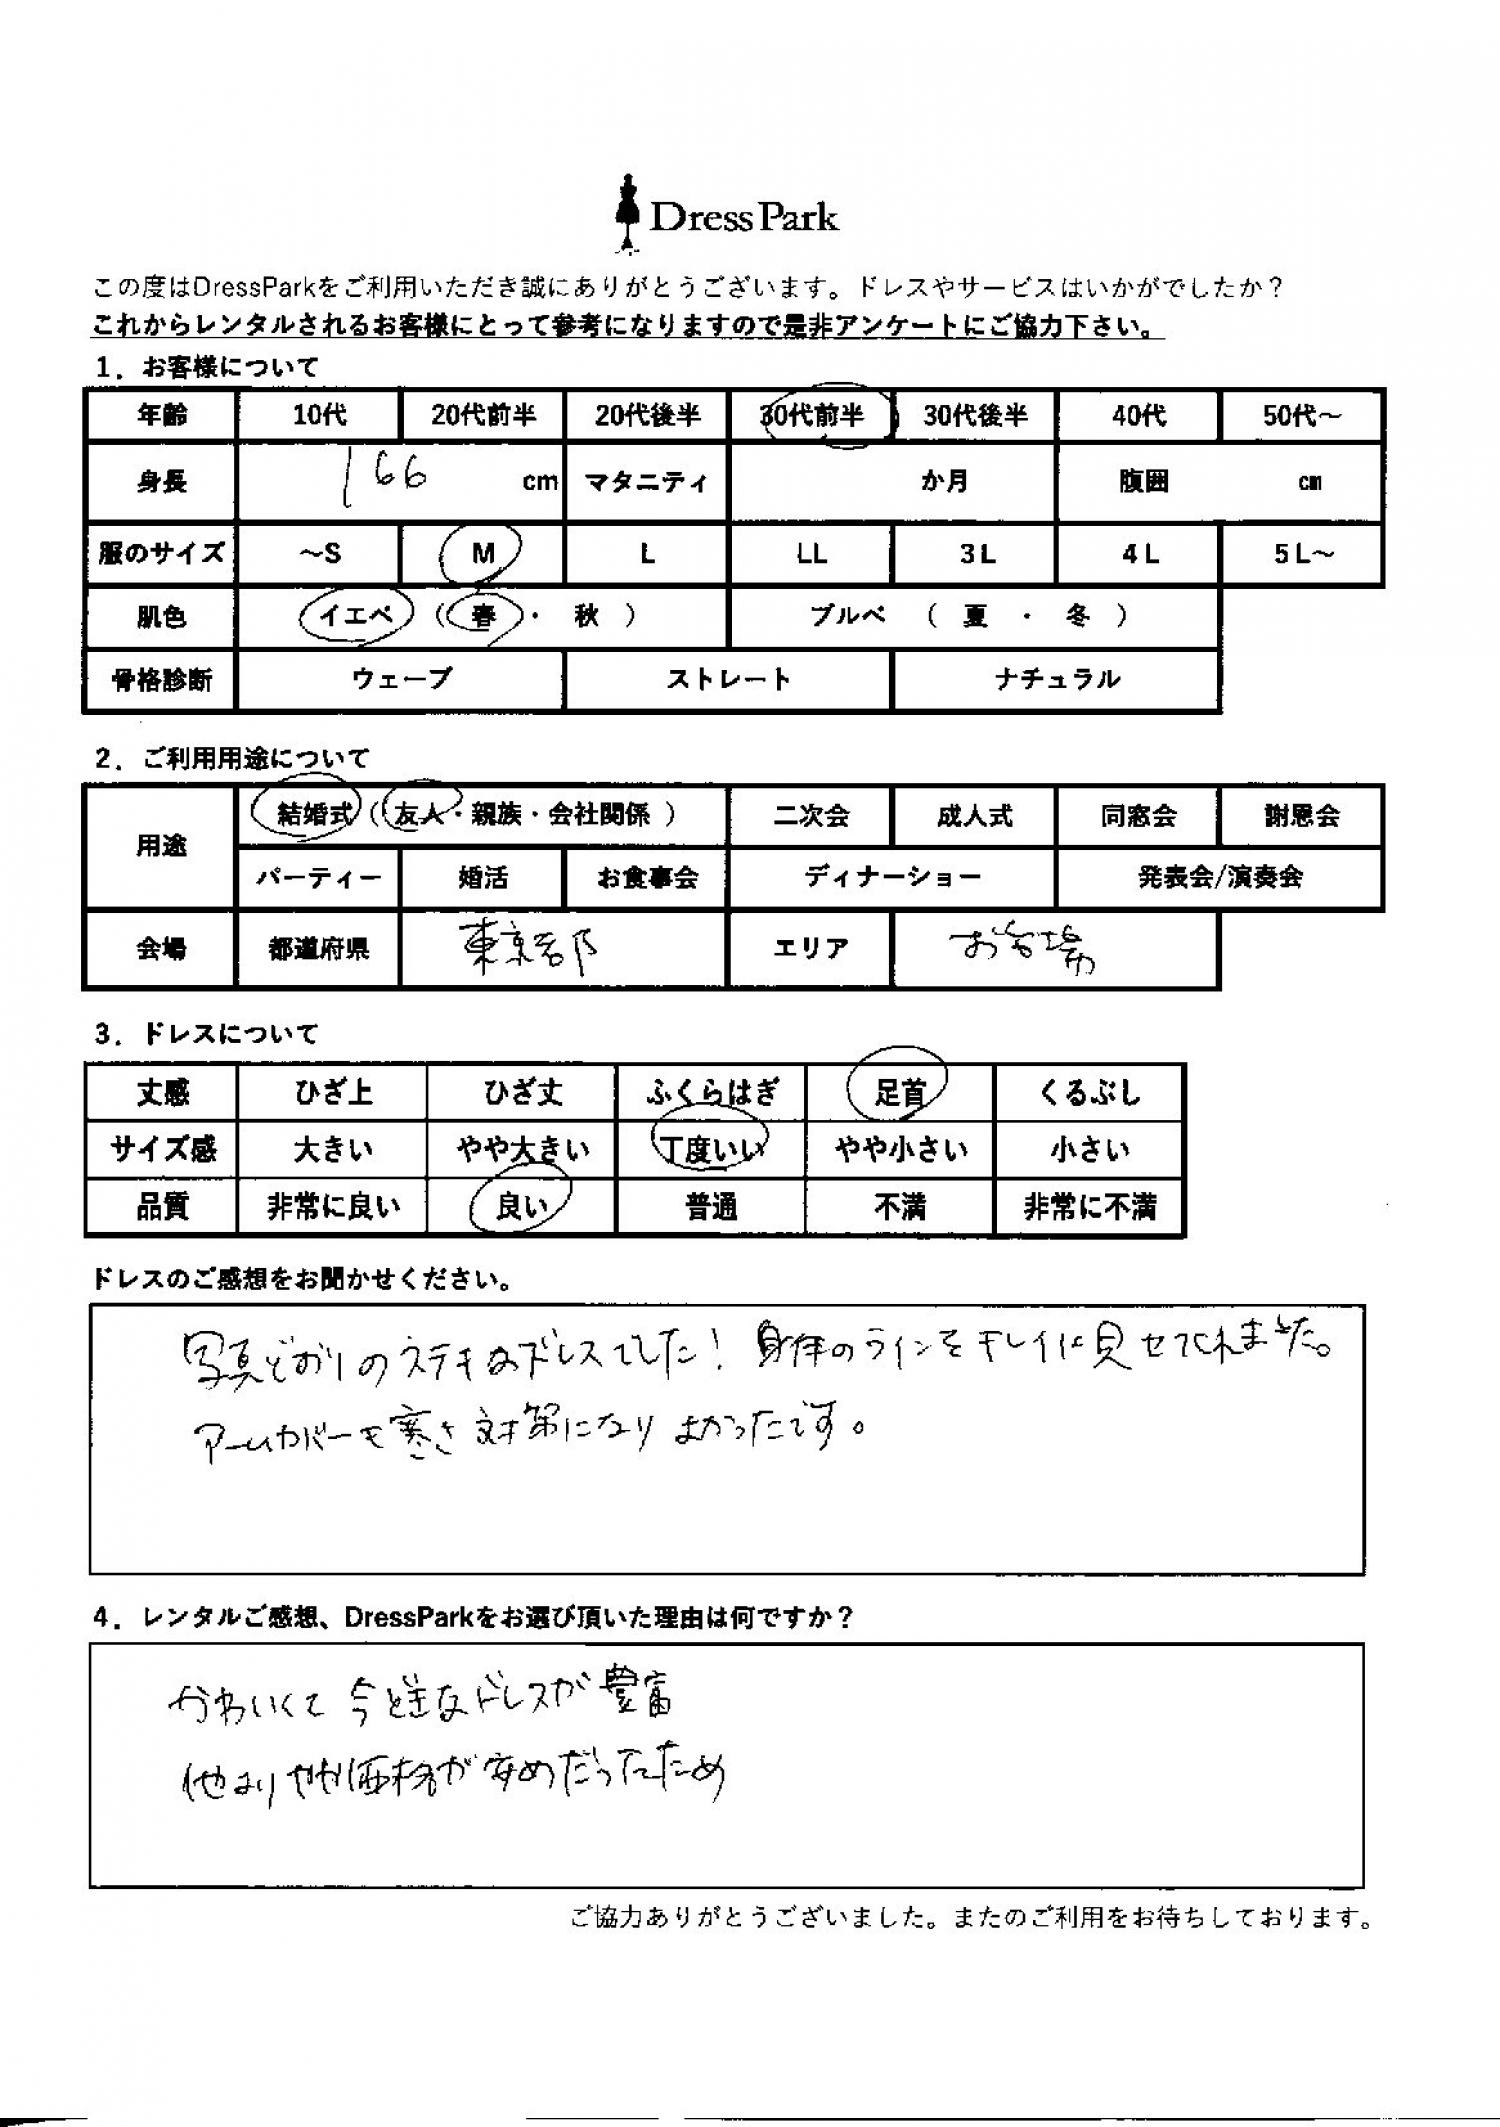 DressPark
この度はDressParkをご利用いただき誠にありがとうございます。ドレスやサービスはいかがでしたか？
これからレンタルされるお客様にとって参考になりますので是非アンケートにご協力下さい。
1．お客様について
年齢 10代 20代前半 20代後半 30代前半 30代後半 40代 50代～
身長 166 cm マタニティ か月 腹囲 cm
服のサイズ ～S M L LL 3L 4L 5L～
肌色 イエベ （ 春 ・ 秋 ） ブルベ （ 夏 ・ 冬 ）
骨格診断 ウェーブ ストレート ナチュラル
2．ご利用用途について
用途 結婚式（ 友人・親族・会社関係 ） 二次会 成人式 同窓会 謝恩会
パーティー 婚活 お食事会 ディナーショー 発表会/演奏会
会場 都道府県 東京都 エリア お台場
3．ドレスについて
丈感 ひざ上 ひざ丈 ふくらはぎ 足首 くるぶし
サイズ感 大きい やや大きい 丁度いい やや小さい 小さい
品質 非常に良い 良い 普通 不満 非常に不満
ドレスのご感想をお聞かせください。
写真どおりのステキなドレスでした！身体のラインをキレイに見せてくれました。
アームカバーも寒さ対策になりよかったです。
4．レンタルご感想、DressParkをお選び頂いた理由は何ですか？
かわいくて今どきなドレスが豊富
他よりやや価格が安めだってため
ご協力ありがとうございました。またのご利用をお待ちしております。